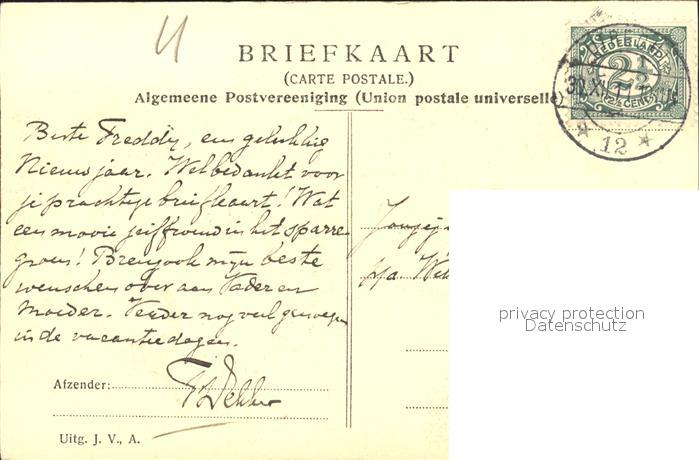 BRIEFKAART
(CARTE POSTALE.)
Algemeene Postvereeniging (Union postale universelle)
NEDERLAND
2½
12
Beste Freddy, een gelukkig
Nieuwjaar. Wel bedankt voor
je prachtige briefkaart! Wat
een mooie in het sparre
groen! Breng ook mijn beste
wenschen over aan Vader en
Moeder. Verder nog veel genoegen
in de vacantiedagen.
p/a
Afzender: Dekker
Uitg. J. V., A.
privacy protection
Datenschutz